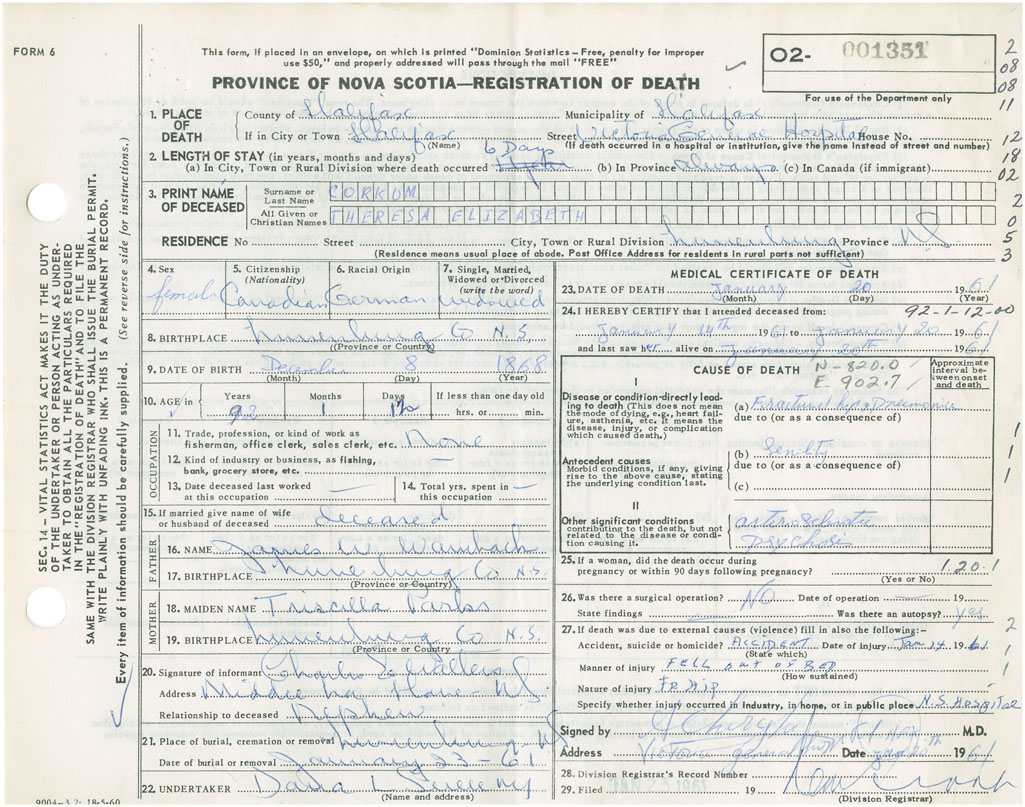 FORM 6
This form, if placed in an envelope, on which is printed "Dominion Statistics – Free, penalty for improper
use $50," and properly addressed will pass through the mail "FREE"
PROVINCE OF NOVA SCOTIA—REGISTRATION OF DEATH
O2- 001351
For use of the Department only
2
08
08
11
12
18
02
2
0
5
3
1. PLACE OF DEATH County of Halifax Municipality of Halifax
If in City or Town Halifax (Name) Street Victoria General Hospital House No.
(If death occurred in a hospital or institution, give the name instead of street and number)
2. LENGTH OF STAY (in years, months and days) 6 Days
(a) In City, Town or Rural Division where death occurred (b) In Province always (c) In Canada (if immigrant)
3. PRINT NAME OF DECEASED Surname or Last Name CORKUM
All Given or Christian Names THERESA ELIZABETH
RESIDENCE No Street City, Town or Rural Division Lunenburg Province NS
(Residence means usual place of abode. Post Office Address for residents in rural parts not sufficient)
4. Sex female
5. Citizenship (Nationality) Canadian
6. Racial Origin German
7. Single, Married, Widowed or Divorced (write the word) widowed
8. BIRTHPLACE Lunenburg Co N.S.
(Province or Country)
9. DATE OF BIRTH December 8 1868
(Month) (Day) (Year)
10. AGE in Years 92 Months 1 Days 12 If less than one day old hrs. or min.
OCCUPATION
11. Trade, profession, or kind of work as fisherman, office clerk, sales clerk, etc. None
12. Kind of industry or business, as fishing, bank, grocery store, etc. —
13. Date deceased last worked at this occupation —
14. Total yrs. spent in this occupation —
15. If married give name of wife or husband of deceased deceased
FATHER
16. NAME James W. Wambach
17. BIRTHPLACE Lunenburg Co N.S.
(Province or Country)
MOTHER
18. MAIDEN NAME Priscilla Parks
19. BIRTHPLACE Lunenburg Co N.S.
(Province or Country)
20. Signature of informant Charles Walters
Address Middle La Have - NS
Relationship to deceased Nephew
21. Place of burial, cremation or removal Lunenburg NS
Date of burial or removal January 23 - 61
22. UNDERTAKER
(Name and address)
MEDICAL CERTIFICATE OF DEATH
23. DATE OF DEATH January 20 1961
(Month) (Day) (Year)
24. I HEREBY CERTIFY that I attended deceased from: 92-1-12-00
January 14th 1961 to January 20 1961
and last saw her alive on January 20th 1961
CAUSE OF DEATH N-820.0
E-902.7
Approximate interval between onset and death
I
Disease or condition directly leading to death (This does not mean the mode of dying, e.g., heart failure, asthenia, etc. It means the disease, injury, or complication which caused death.)
(a) Fractured hip & Pneumonia
due to (or as a consequence of)
Antecedent causes
Morbid conditions, if any, giving rise to the above cause, stating the underlying condition last.
(b) Senility
due to (or as a consequence of)
(c)
II
Other significant conditions
contributing to the death, but not related to the disease or condition causing it.
Psychosis
25. If a woman, did the death occur during pregnancy or within 90 days following pregnancy? 1.20.1
(Yes or No)
26. Was there a surgical operation? NO Date of operation — 19
State findings Was there an autopsy? yes
27. If death was due to external causes (violence) fill in also the following:–
Accident, suicide or homicide? ACCIDENT Date of injury Jan 14 1961
(State which)
Manner of injury FELL OUT OF BED
(How sustained)
Nature of injury Fr Hip
Specify whether injury occurred in industry, in home, or in public place N.S. Hospital
Signed by M.D.
Address Victoria General Date Jan 20th 1961
28. Division Registrar's Record Number
29. Filed JAN 23 1961 19
(Division Registrar)
SEC. 14 – VITAL STATISTICS ACT MAKES IT THE DUTY
OF THE UNDERTAKER OR PERSON ACTING AS UNDER-
TAKER TO OBTAIN ALL THE PARTICULARS REQUIRED
IN THE "REGISTRATION OF DEATH" AND TO FILE THE
SAME WITH THE DIVISION REGISTRAR WHO SHALL ISSUE THE BURIAL PERMIT.
WRITE PLAINLY WITH UNFADING INK. THIS IS A PERMANENT RECORD.
Every item of information should be carefully supplied. (See reverse side for instructions.)
1
1
1
2
1
1
9004-3.2: 18-5-60